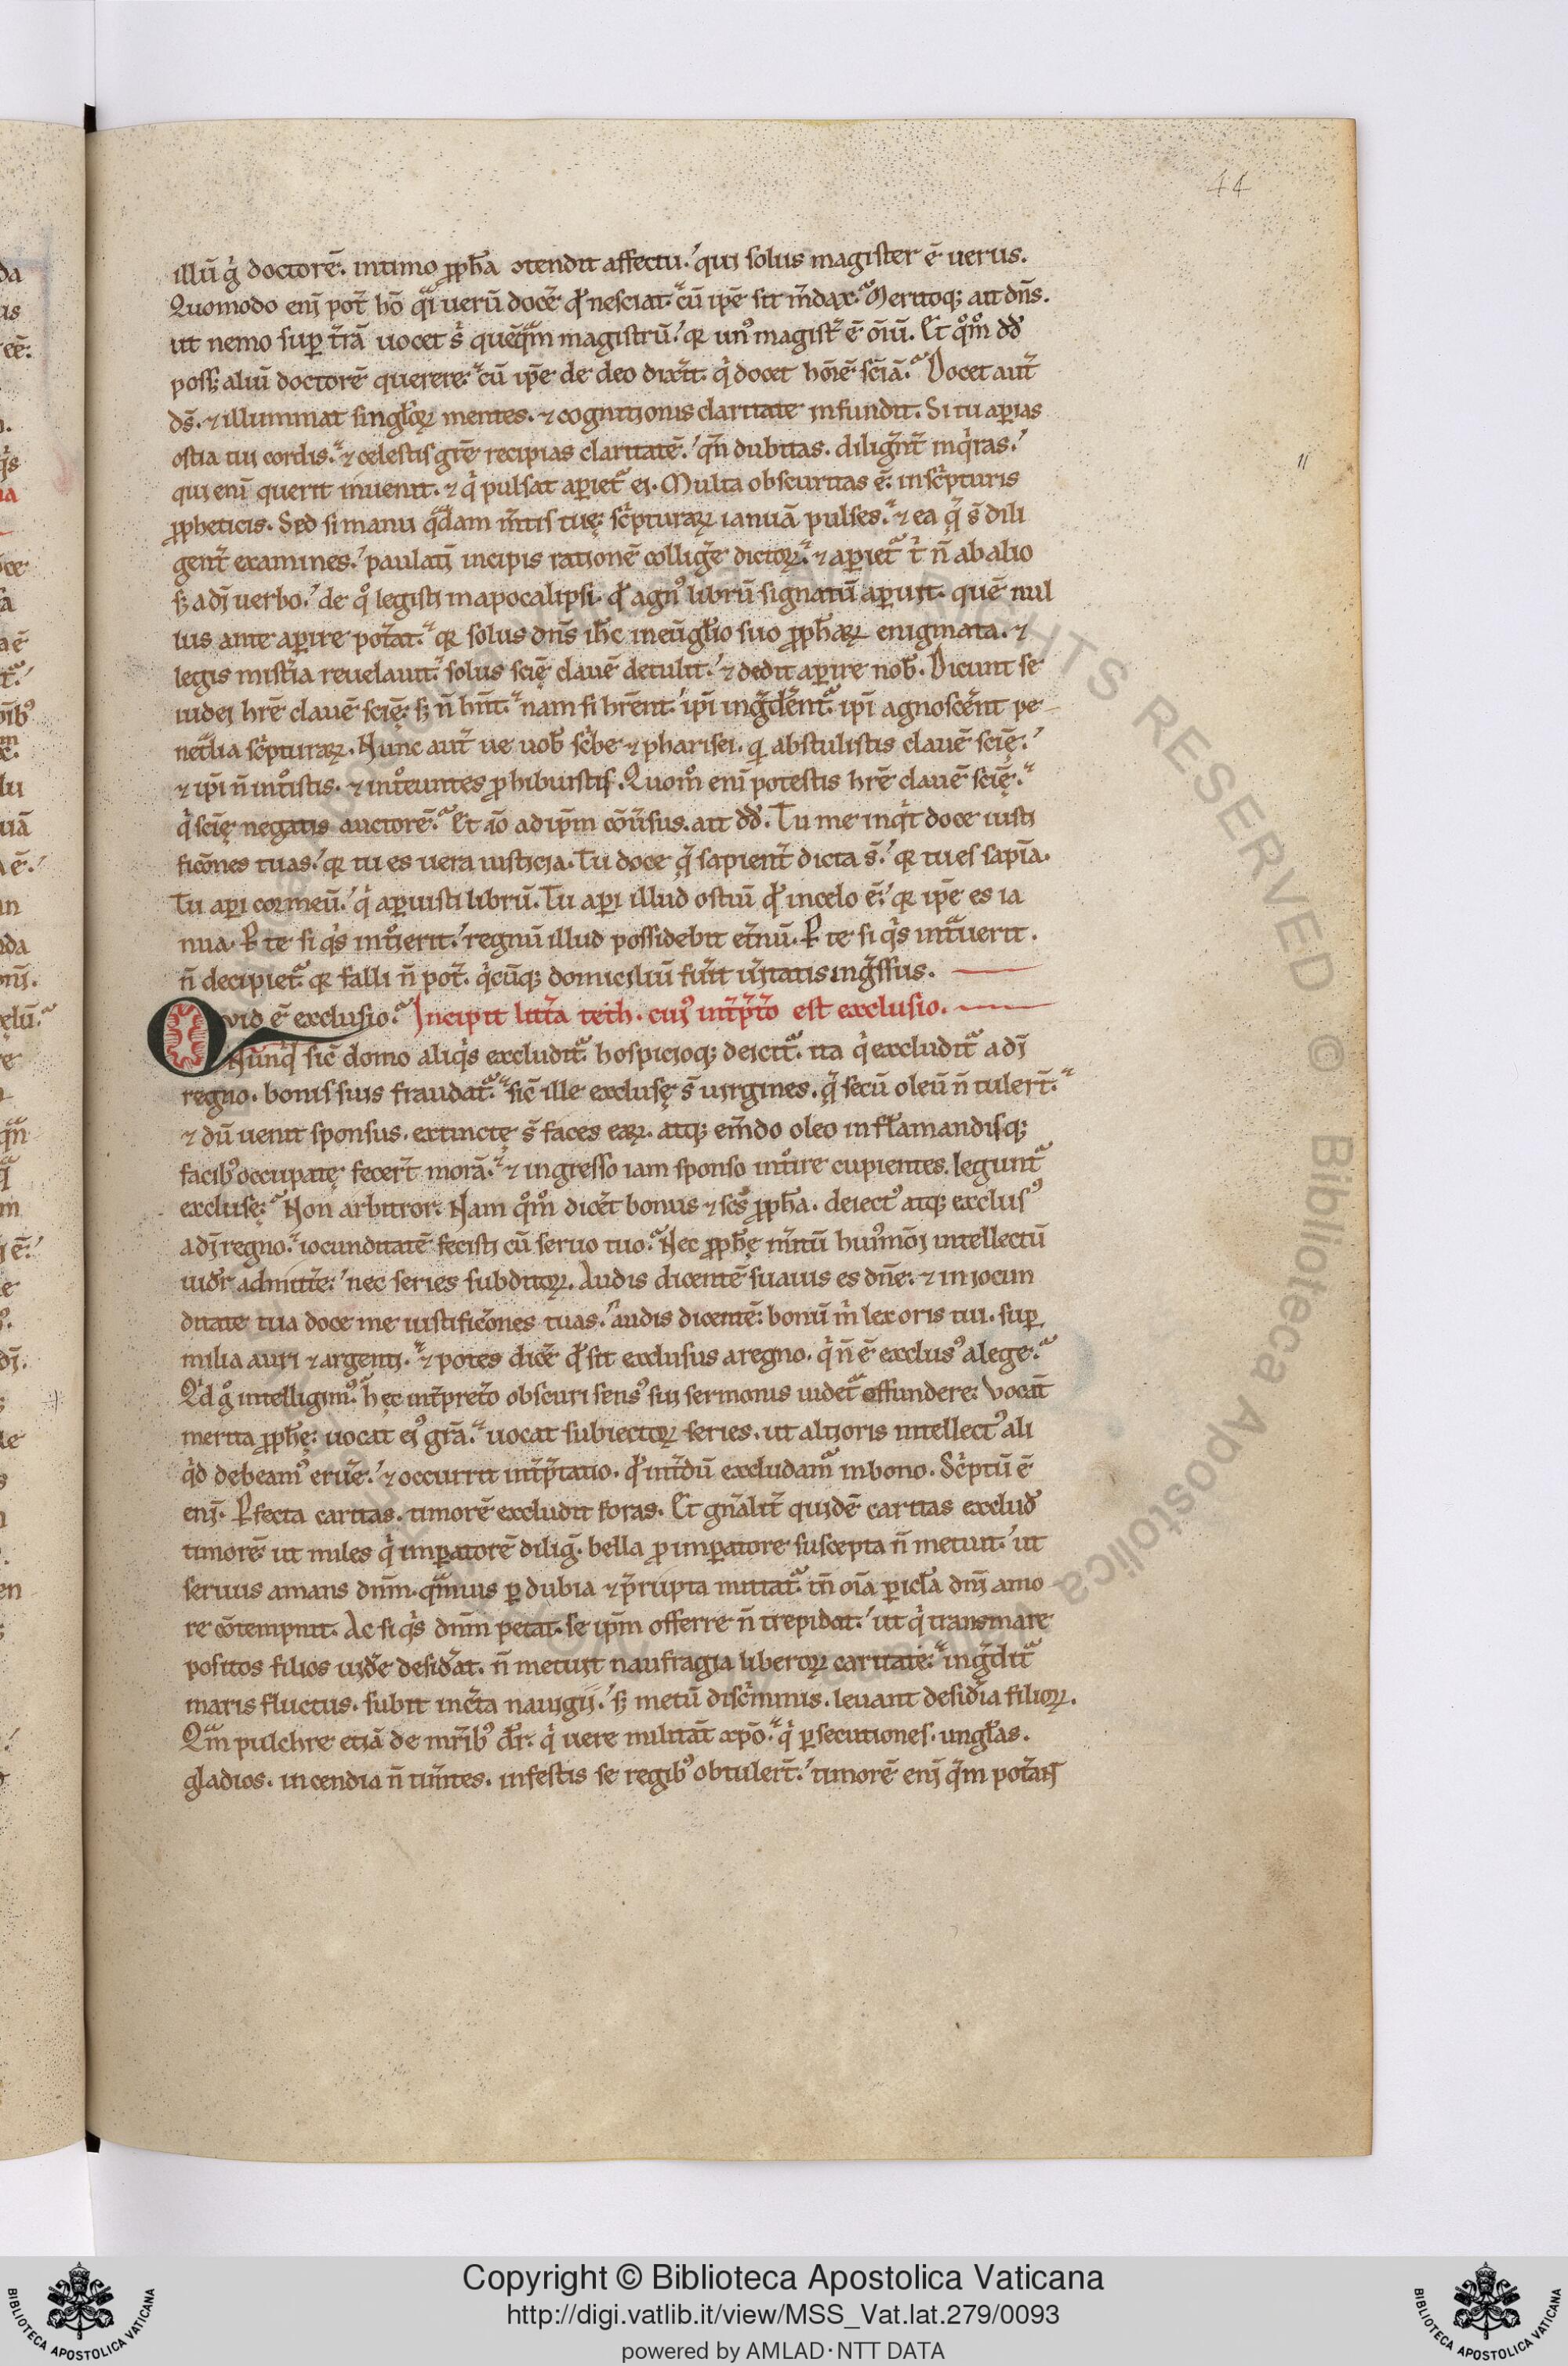 44
illū g̊ doctorē. intimo ꝓph̄a ↄtendit affectu. qui solus magister ē uerus.
Quomodo enī pot̄ hō qͥ uerū docēr qđ nesciat. cū ip̄e sit m̄dax. Meritoq; ait dn̄s.
ut nemo suꝑ t̄rā uocet s̄ quēqͣm magistrū. qꝛ unꝰ magist̄ ē oīū. Et qͦmͦ dđ
poss; aliū doctorē querere. cū ip̄e de deo dix̄it. qͥ docet hoīē sc̄iā. Docet aut̄
ds̄. ⁊ illuminat singl̄oꝝ mentes. ⁊ cognitionis claritate infundit. Si tu aꝑias
ostia tui cordis. ⁊ celestis grē recipias claritatē. qn̄ dubitas. dilign̄t inqͥras.
qui enī querit inuenit. ⁊ qͥ pulsat aꝑietᷣ ei. Multa obscuritas ē. in sc̄pturis
ꝓpheticis. Sed si manu qͣdam m̄tis tuę. sc̄pturaꝝ ianuā pulses. ⁊ ea q̨̄ s̄ dili
gent̄ examines. paulatī incipis rationē collige̅ dictoꝝ. ⁊ aꝑietᷣ t̄ n̄ ab alio
s; a dī uerbo. de qͦ legisti in apocalipsi. qđ agnꝰ librū signatū aꝑuit. quē nul
lus ante aꝑire pot̄at. qꝛ solus dn̄s ih̄c in eūgl̄io suo ꝓph̄aꝝ enigmata. ⁊
legis mist̄ia reuelauit. solus scię̄ clauē detulit. ⁊ dedit aꝑire nob̄. Dicunt se
iudei hr̄e clauē scię̄. s; n̄ hn̄t. nam si hr̄ent. ip̄i ingͣdēr̄entᷣ. ip̄i agnosce̅nt pe
net̄lia sc̄pturaꝝ. Nunc aut̄ ue uob̄ sc̄be ⁊ pharisei. qͥ abstulistis clauē scię̄.
⁊ ip̄i n̄ intͦistis. ⁊ intͦeuntes ꝓhibuistis. Quomͦ enī potestis hr̄e clauē scię̄.
qͥ scię̄ negatis auctorē. Et iō ad ip̄m cōu̅sus. ait dđ. Tu me inqͥt doce iusti
ficōnes tuas. qꝛ tu es uera iusticia. Tu doce q̨̄ sapient̄ dicta s̄. qꝛ tu es sapīa.
Tu aꝑi cor meū. qͥ aꝑuisti librū. Tu aꝑi illud ostiū qđ in celo ē. qꝛ ip̄e es ia
nua. Ꝑ te si qͥs intͦierit. regnū illud possidebit et̄nū. Ꝑ te si qͥs intͣuerit.
n̄ decipietᷣ qꝛ falli n̄ pot̄. qͥcūq; domiciliū fūit ūitatis ingͤssus.
Qvid ē exclusio. Incipit litt̄a teth. cuiꝰ int̄p̄t̄o est exclusio.
Nunqͥd sic̄ domo aliqͥs excluditᷣ. hospicioq; deicitᷣ. ita qͥ excluditᷣ a dī
regno. bonis suis fraudatᷣ. sic̄ ille exclusę s̄ uirgines. q̨̄ secū oleū n̄ tulert̄.
⁊ dū uenit sponsus. extinctę s̄ faces eaꝝ. atq; em̄do oleo inflāmandisq;
facibꝰ occupatę fecert̄ morā. ⁊ ingresso iam sponso intͦire cupientes. leguntᷣ
exclusę. Non arbitror. Nam qͦmͦ dice̅t bonus ⁊ sc̄s ꝓph̄a. deiectꝰ atq; exclusꝰ
a dī regno. iocunditatē fecisti cū seruo tuo. Nec ꝓph̄ę m̄itū huiꝰmōi intellectū
uidr̄ admitt̄e. nec series subditoꝝ. Audis dicentē suauis es dn̄e. ⁊ in iocun
ditate tua doce me iustific̄ones tuas. audis dicentē. bonū m̄ lex oris tui. suꝑ
milia auri ⁊ argenti. ⁊ potes dicē qđ sit exclusus a regno. qͥ n̄ ē exclusꝰ a lege.
Qͥd g̊ intelligimꝰ. hęc int̄pret̄o obscuri sensꝰ sui sermonis uidetᷣ effundere. Vocat̄
merita ꝓph̄ę. uocat eiꝰ grā. uocat subiectoꝝ series. ut altioris intellectꝰ ali
qͥd debeamꝰ erue̅. ⁊ occurrit int̄p̄tatio. qđ int̄dū excludamᷣ in bono. Sc̄ptū ē
enī. Ꝑfecta caritas. timorē excludit foras. Et gn̄alit̄ quidē caritas exclud̄
timorē. ut miles qͥ imꝑatorē dilig̅. bella ꝓ imꝑatore suscepta n̄ metuit. ut
seruus amans dn̄m. qͣmuis ꝑ dubia ⁊ p̄rupta mittatᷣ. tn̄ oīa ꝑicl̄a dn̄i amo
re cōtempnit. Ac si qͥs dn̄m petat. se ip̄m offerre n̄ trepidat. ut qͥ trans mare
positos filios uide̅ desid̄at. n̄ metuit naufragia liberoꝝ caritate. ingͣditᷣ
maris fluctus. subit inc̄ta nauigii. s; metū disc̄minis. leuant desid̄ia filioꝝ.
Qͣm pulchre etiā de mr̄ibꝰ dr̄. qͥ uere militāt xpō. qͥ ꝑsecutiones. ungl̄as.
gladios. incendia n̄ tim̄tes. infestis se regibꝰ obtulert̄. timorē enī qͣm pot̄ant
Copyright © Biblioteca Apostolica Vaticana
http://digi.vatlib.it/view/MSS_Vat.lat.279/0093
powered by AMLAD·NTT DATA